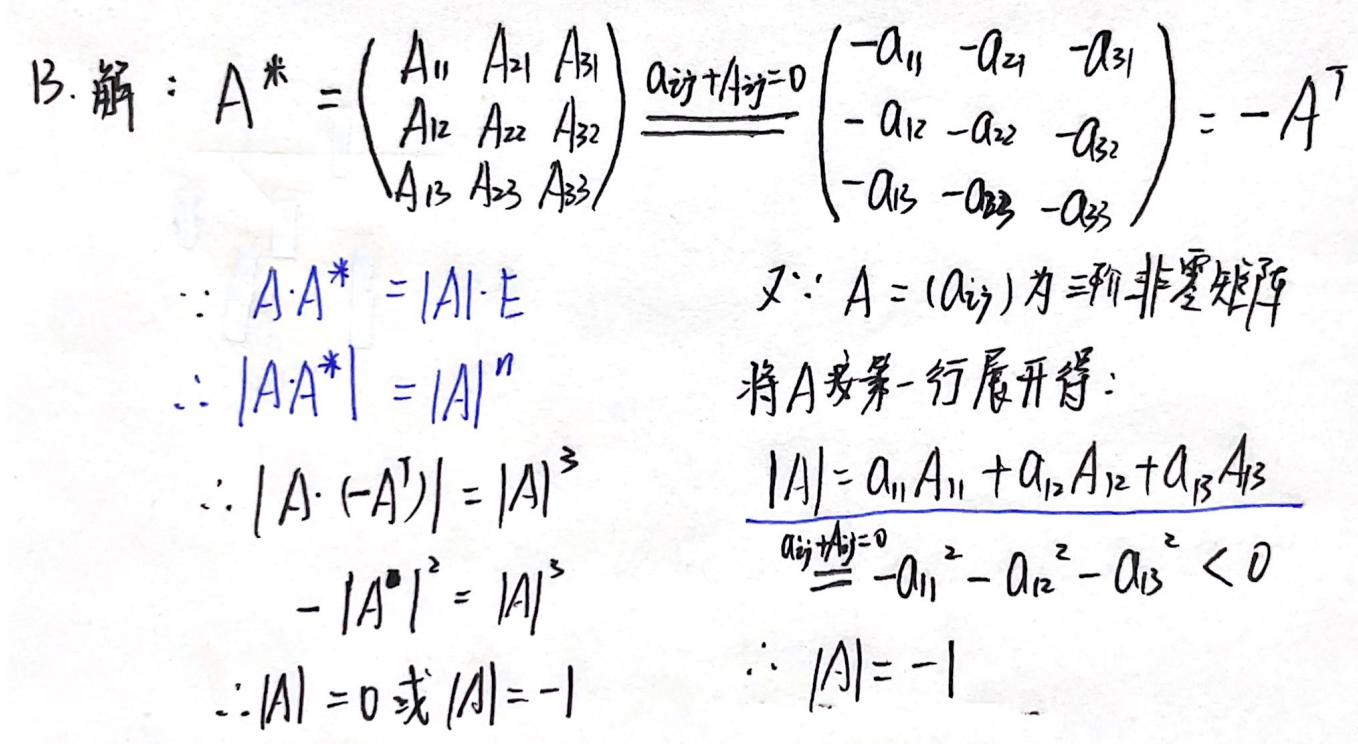 13. 解: A* = ( A11 A21 A31 ; A12 A22 A32 ; A13 A23 A33 ) aij+Aij=0 ═══ ( -a11 -a21 -a31 ; -a12 -a22 -a32 ; -a13 -a23 -a33 ) = -A^T
∵ A·A* = |A|·E
∴ |A·A*| = |A|^n
∴ |A·(-A^T)| = |A|^3
- |A|^2 = |A|^3
∴ |A| = 0 或 |A| = -1
又∵ A = (aij) 为三阶非零矩阵
将A按第一行展开得:
|A| = a11A11 + a12A12 + a13A13
aij+Aij=0 ═ -a11^2 - a12^2 - a13^2 < 0
∴ |A| = -1